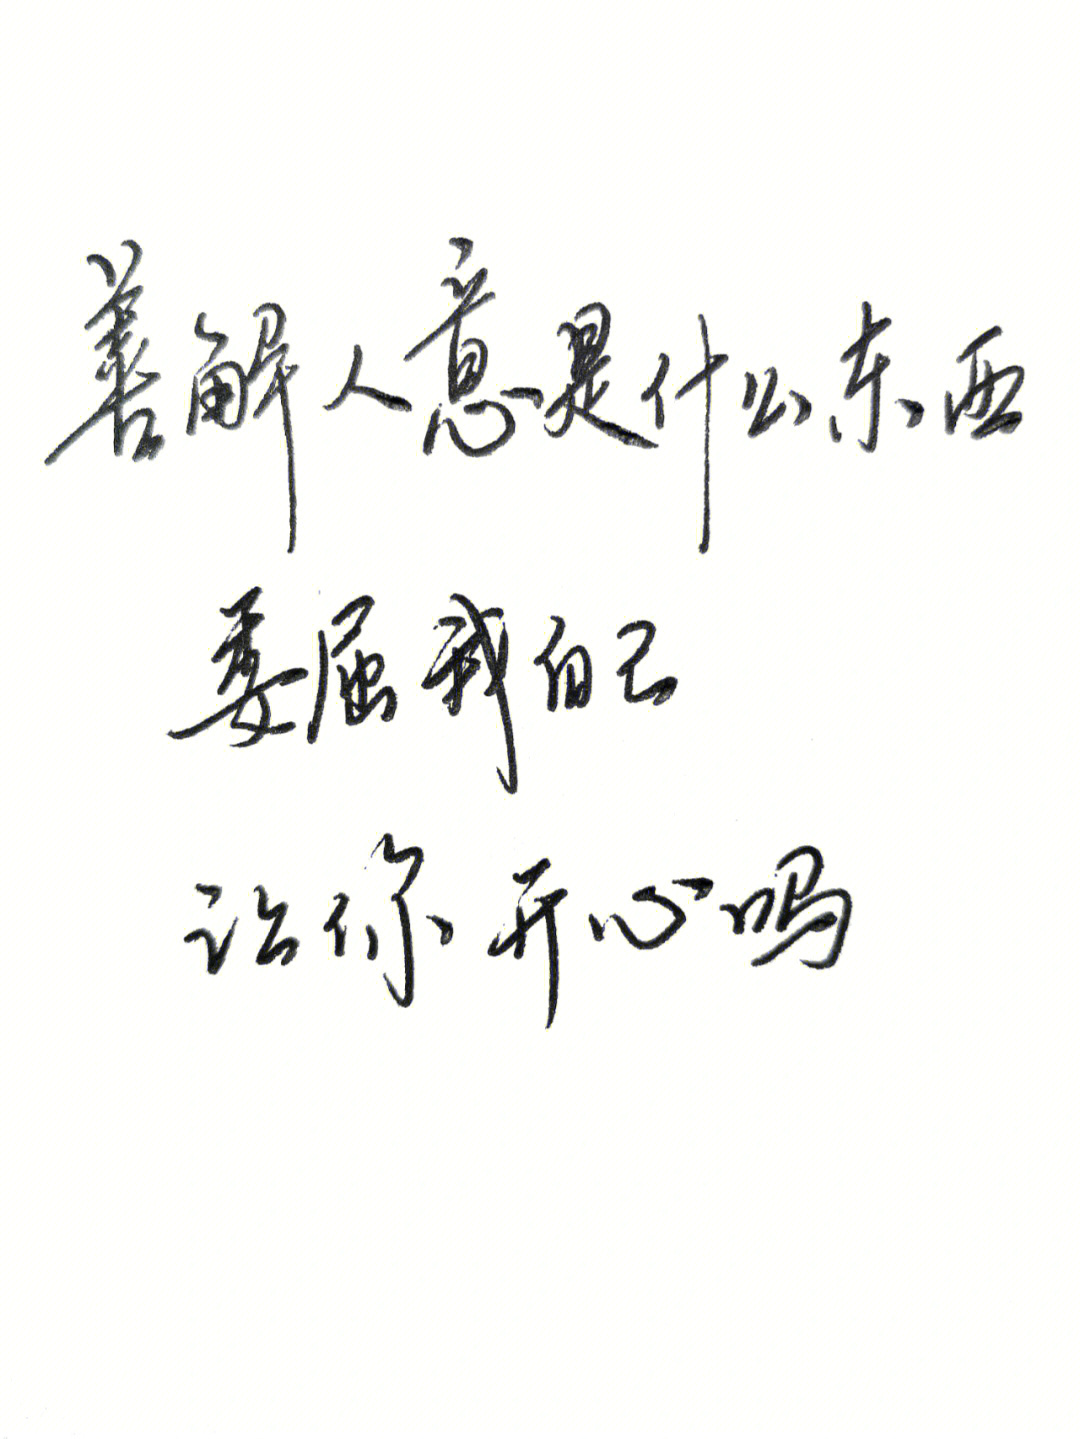 善解人意是什么东西
委屈我自己
让你开心吗